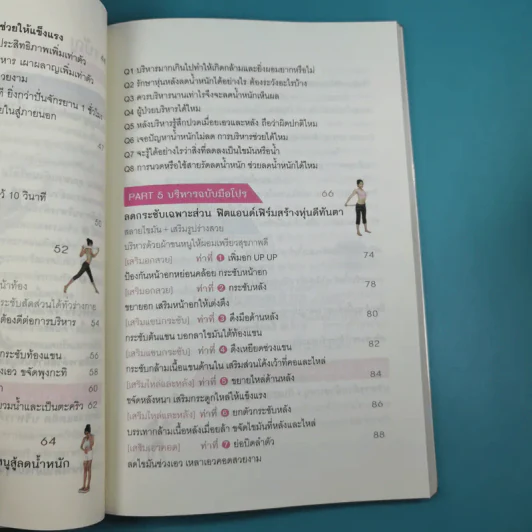 ช่วยให้แข็งแรง
ประสิทธิภาพเพิ่มเท่าตัว
หาร เผาผลาญเพิ่มเท่าตัว
วยงาม
ที่ ยิ่งกว่าปั่นจักรยาน 1 ชั่วโมง
ยในสู่ภายนอก
ว้ 10 วินาที
50
52
น้าท้อง
ระชับสัดส่วนได้ทั่วร่างกาย
ต้องดีต่อการบริหาร 54
กระชับท้องแขน 56
งเอว ขจัดพุงกะทิ 58
60
บวมน้ำและเป็นตะคริว 62
64
หนูสู้ลดน้ำหนัก
Q1 บริหารมากเกินไปทำให้เกิดกล้ามและยิ่งผอมยากหรือไม่
Q2 รักษาหุ่นหลังลดน้ำหนักได้อย่างไร ต้องระวังอะไรบ้าง
Q3 ควรบริหารนานเท่าไรจึงจะลดน้ำหนักเห็นผล
Q4 ผู้ป่วยบริหารได้ไหม
Q5 หลังบริหารรู้สึกปวดเมื่อยเอวและหลัง ถือว่าผิดปกติไหม
Q6 เจอปัญหาน้ำหนักไม่ลด การบริหารช่วยได้ไหม
Q7 จะรู้ได้อย่างไรว่าสิ่งที่ลดลงเป็นไขมันหรือน้ำ
Q8 การนวดหรือใช้สายรัดลดน้ำหนัก ช่วยลดน้ำหนักได้ไหม
PART 5 บริหารฉบับมือโปร 66
ลดกระชับเฉพาะส่วน ฟิตแอนด์เฟิร์มสร้างหุ่นดีทันตา
สลายไขมัน + เสริมรูปร่างสวย
บริหารด้วยผ้าขนหนูให้ผอมเพรียวสุขภาพดี
[เสริมอกสวย] ท่าที่ 1 เพิ่มอก UP UP 74
ป้องกันหน้าอกหย่อนคล้อย กระชับหน้าอก
[เสริมอกสวย] ท่าที่ 2 กระชับหลัง 78
ขยายอก เสริมหน้าอกให้เต่งตึง
[เสริมแขนกระชับ] ท่าที่ 3 ดึงมือด้านหลัง 80
กระชับต้นแขน บอกลาไขมันใต้ท้องแขน
[เสริมแขนกระชับ] ท่าที่ 4 ดึงเหยียดช่วงแขน 82
กระชับกล้ามเนื้อแขนด้านใน เสริมส่วนโค้งเว้าที่คอและไหล่
[เสริมไหล่และหลัง] ท่าที่ 5 ขยายไหล่ด้านหลัง 84
ขจัดหลังหนา เสริมกระดูกไหล่ให้แข็งแรง
[เสริมไหล่และหลัง] ท่าที่ 6 ยกตัวกระชับหลัง 86
บรรเทากล้ามเนื้อหลังเมื่อยล้า ขจัดไขมันที่หลังและไหล่
[เสริมเอวคอด] ท่าที่ 7 ย่อบิดลำตัว 88
ลดไขมันช่วงเอว เหลาเอวคอดสวยงาม